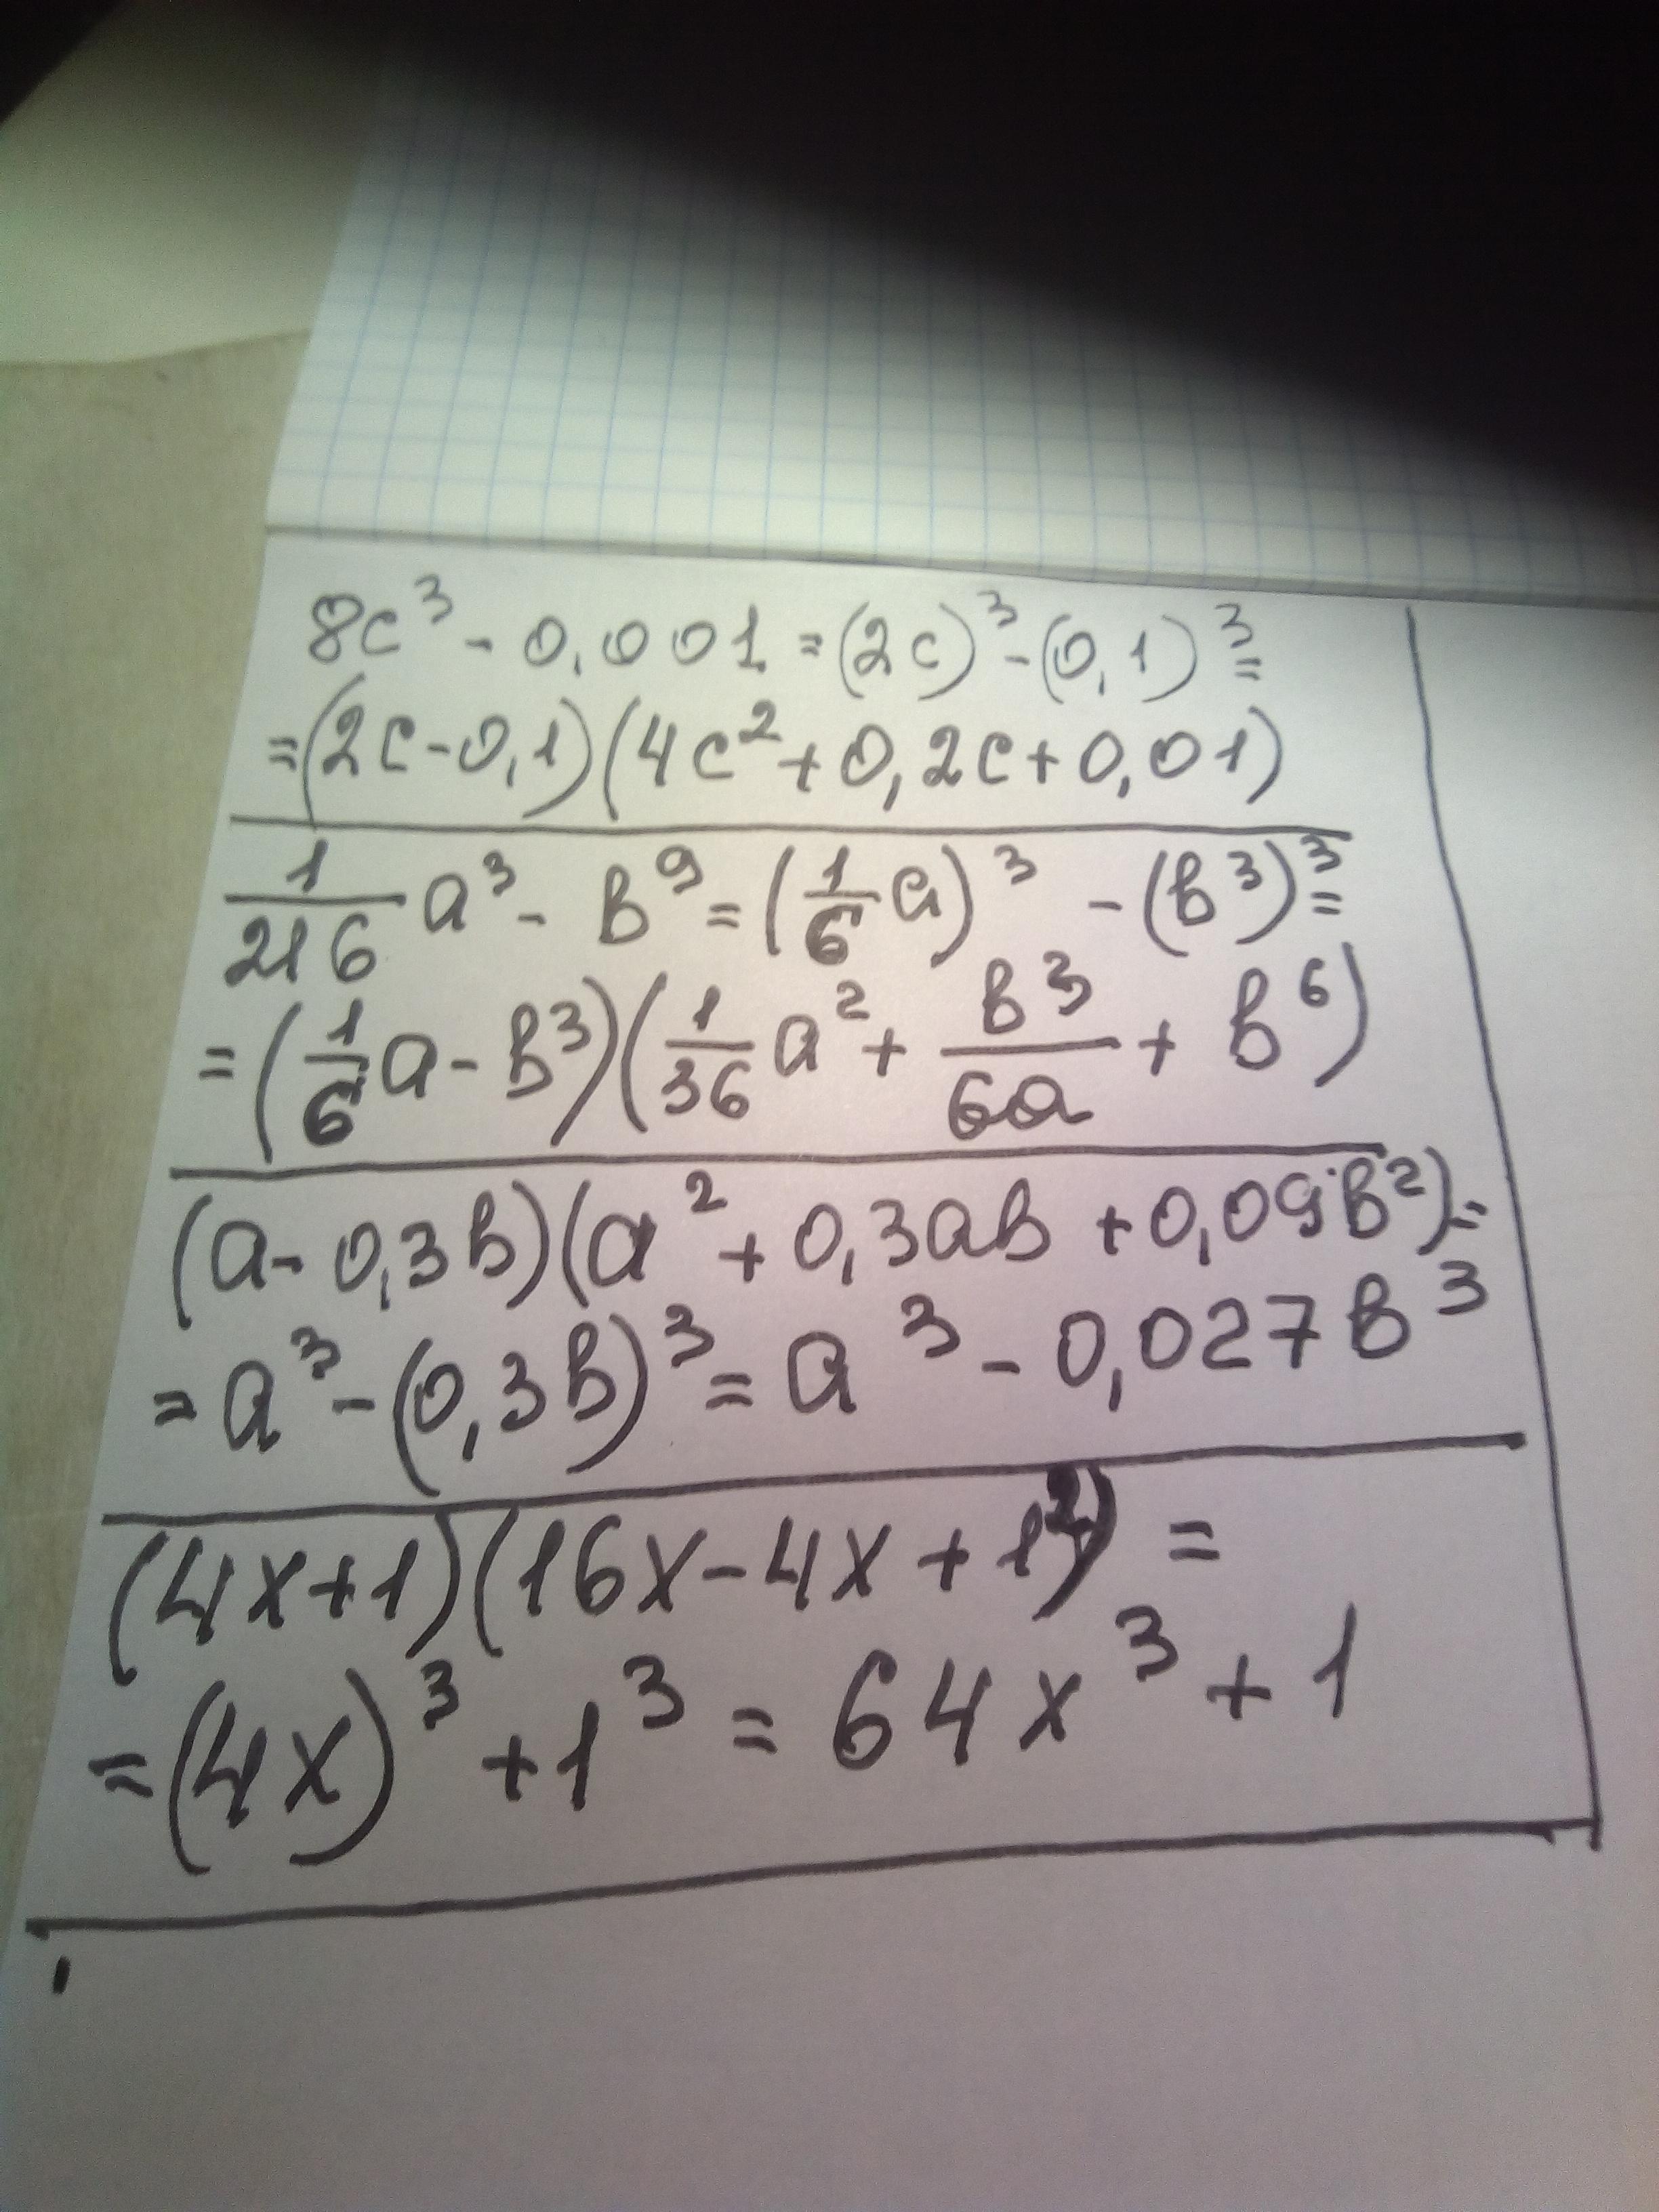 8c³ - 0,001 = (2c)³ - (0,1)³ =
= (2c - 0,1)(4c² + 0,2c + 0,01)
1/216 a³ - в⁹ = (1/6 a)³ - (в³)³ =
= (1/6 a - в³)(1/36 a² + в³/6a + в⁶)
(a - 0,3в)(a² + 0,3aв + 0,09в²) =
= a³ - (0,3в)³ = a³ - 0,027в³
(4x+1)(16x - 4x + 1²) =
= (4x)³ + 1³ = 64x³ + 1